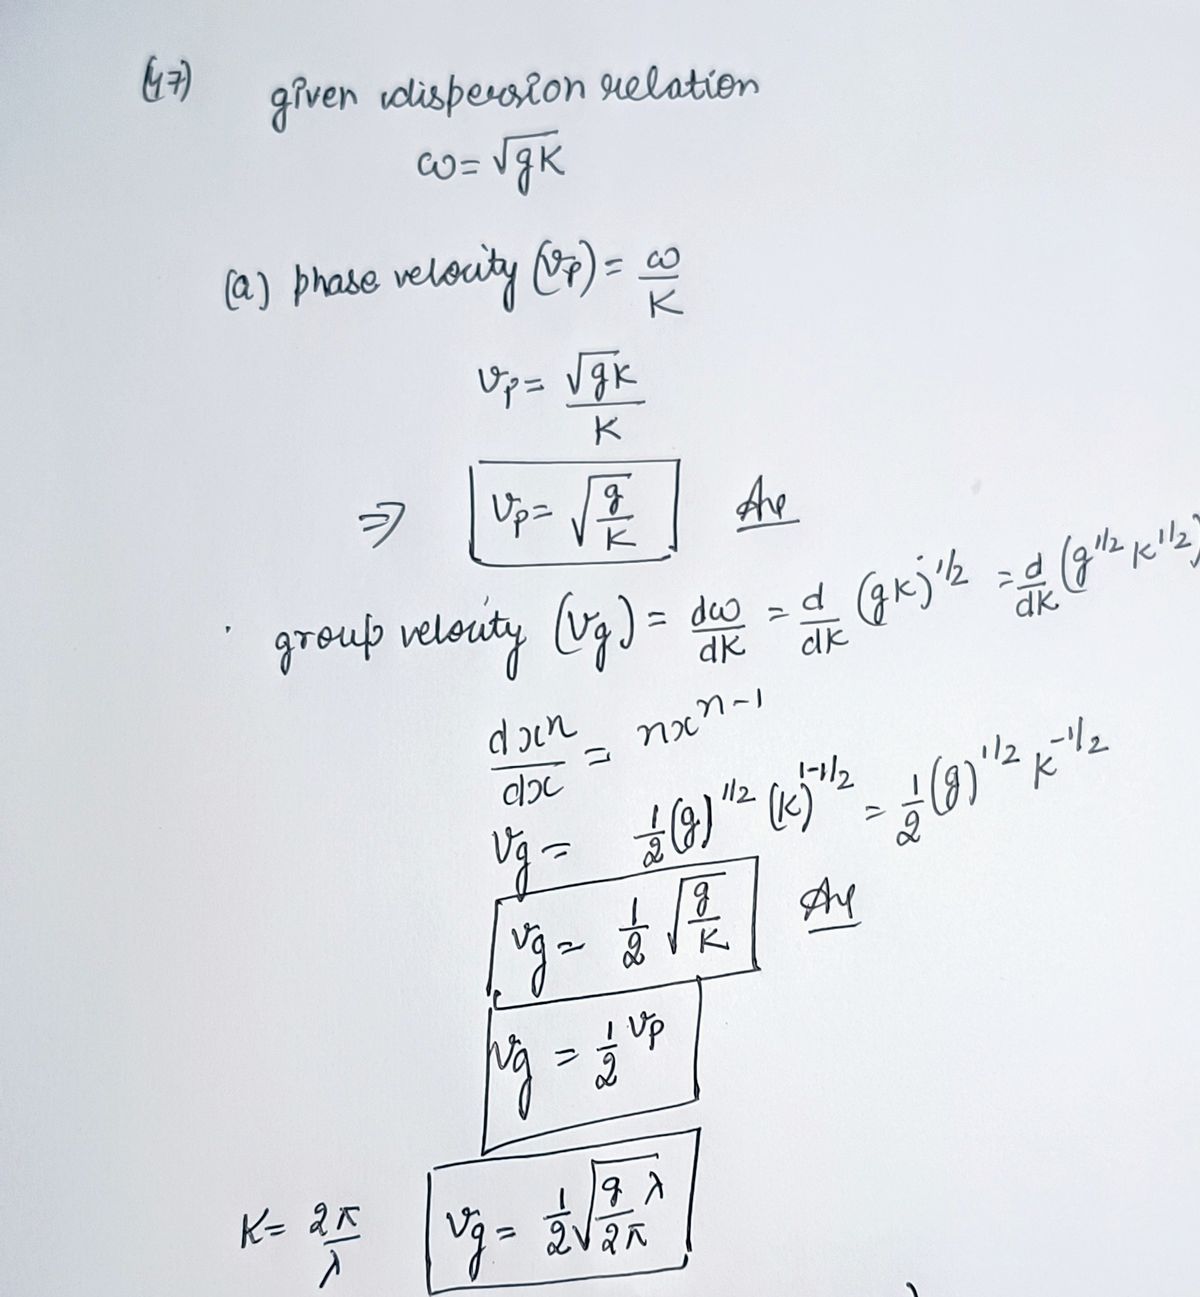 (47) given dispersion relation
ω = √gK
(a) phase velocity (vp) = ω/K
vp = √gK/K
⇒ vp = √(g/K) Ans
group velouity (vg) = dω/dK = d/dK (gK)^1/2 = d/dK (g^1/2 K^1/2)
dx^n/dx = nx^n-1
vg = 1/2 (g)^1/2 (K)^1-1/2 = 1/2 (g)^1/2 K^-1/2
vg = 1/2 √(g/K) Ans
vg = 1/2 vp
K = 2π/λ vg = 1/2 √(gλ/2π)